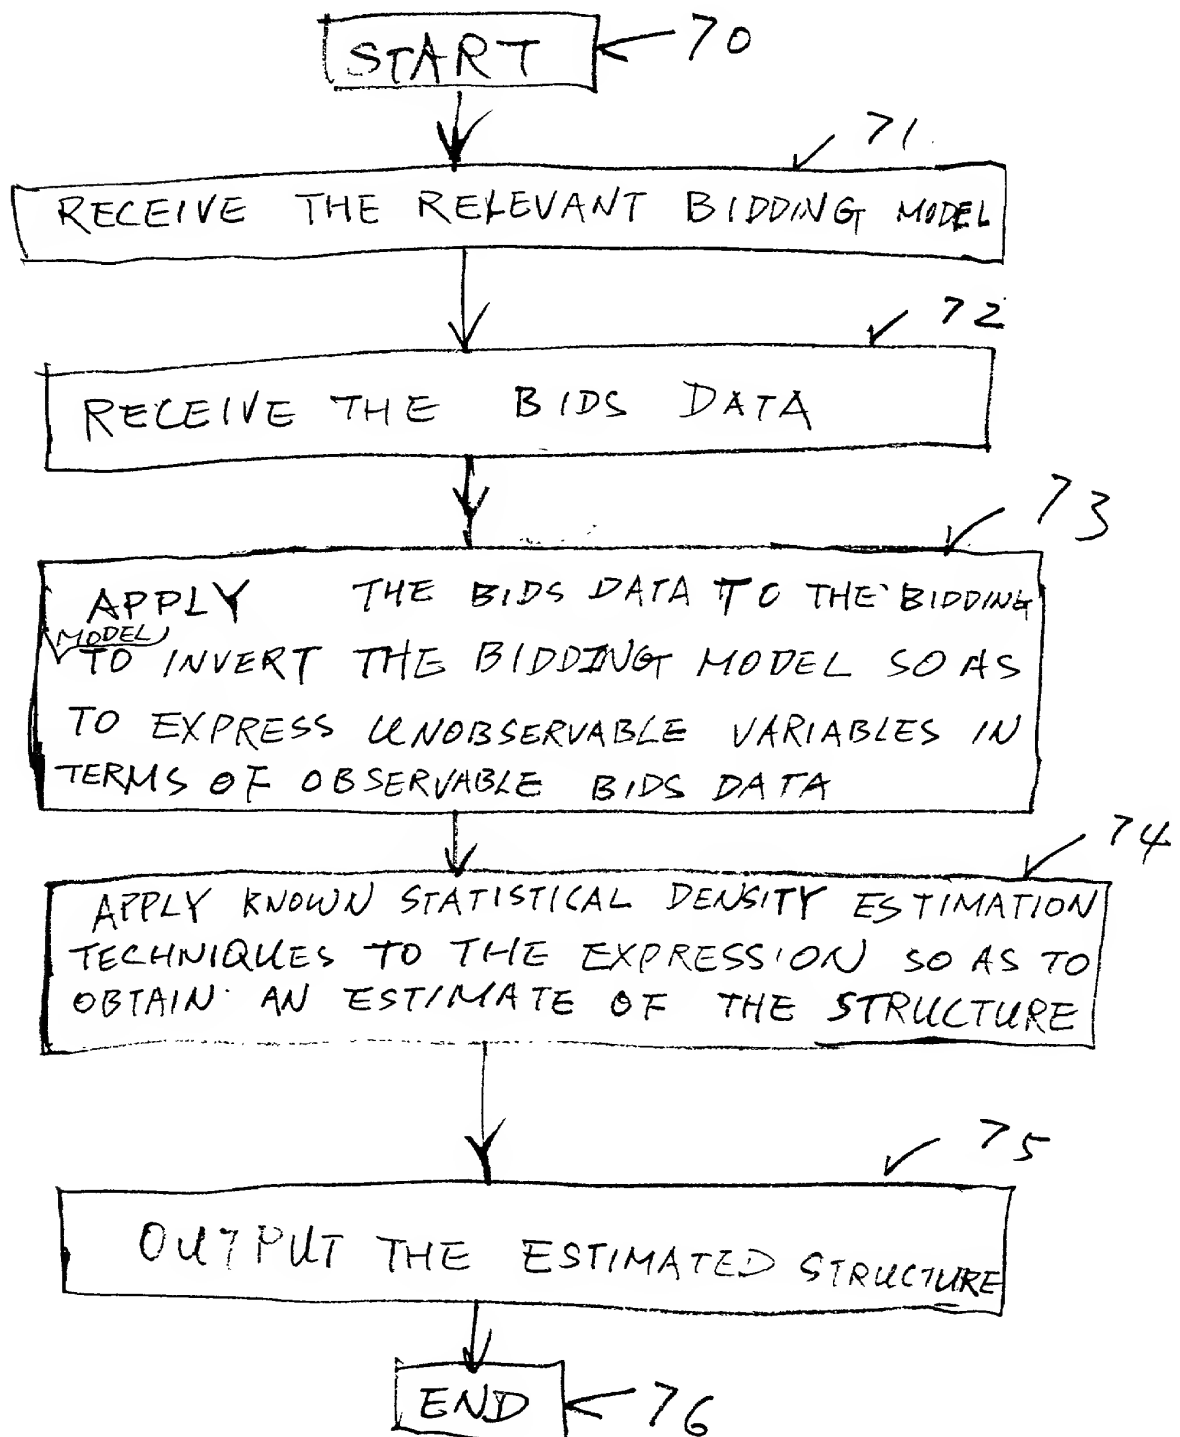 START
70
71
RECEIVE THE RELEVANT BIDDING MODEL
72
RECEIVE THE BIDS DATA
73
APPLY THE BIDS DATA TO THE BIDDING
MODEL
TO INVERT THE BIDDING MODEL SO AS
TO EXPRESS UNOBSERVABLE VARIABLES IN
TERMS OF OBSERVABLE BIDS DATA
74
APPLY KNOWN STATISTICAL DENSITY ESTIMATION
TECHNIQUES TO THE EXPRESSION SO AS TO
OBTAIN AN ESTIMATE OF THE STRUCTURE
75
OUTPUT THE ESTIMATED STRUCTURE
END
76